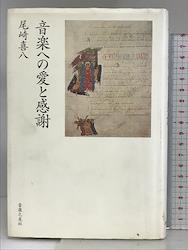 音楽への愛と感謝
尾崎喜八
音楽之友社